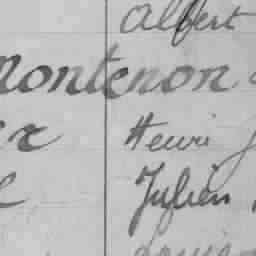 Albert
Montenon
Henri J
Julien